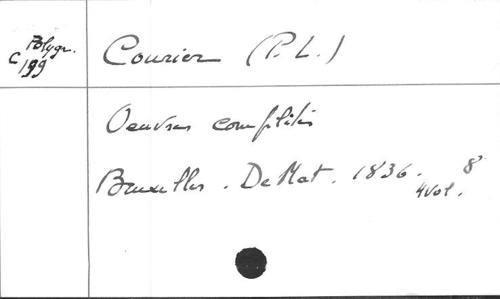 Polygr.
C 199
Courier (P. L.)
Oeuvres complètes
Bruxelles. De Mat. 1836. 8°
4 vol.